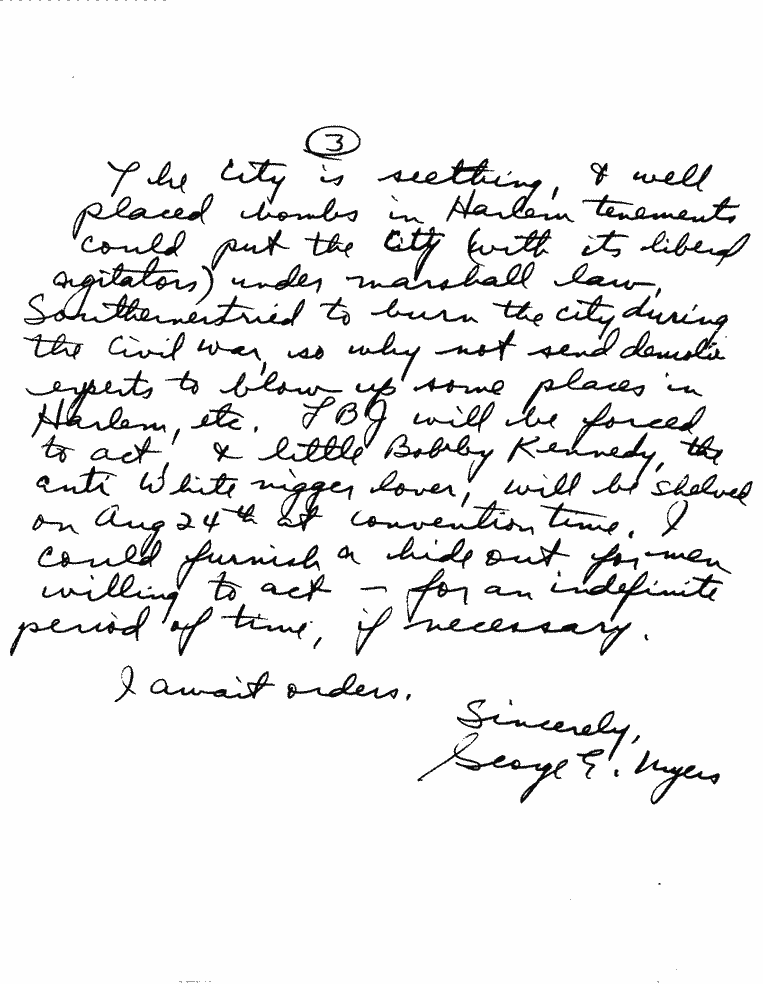 3
The City is seething, & well
placed bombs in Harlem tenements
could put the City (with its liberal
agitators) under marshall law,
Southerners tried to burn the city during
the Civil War, so why not send demolit
experts to blow up some places in
Harlem, etc. LBJ will be forced
to act, & little Bobby Kennedy, the
anti White nigger lover, will be shelved
on Aug 24th at convention time. I
could furnish a hide out for men
willing to act – for an indefinite
period of time, if necessary.
I await orders.
Sincerely,
George E. Myers